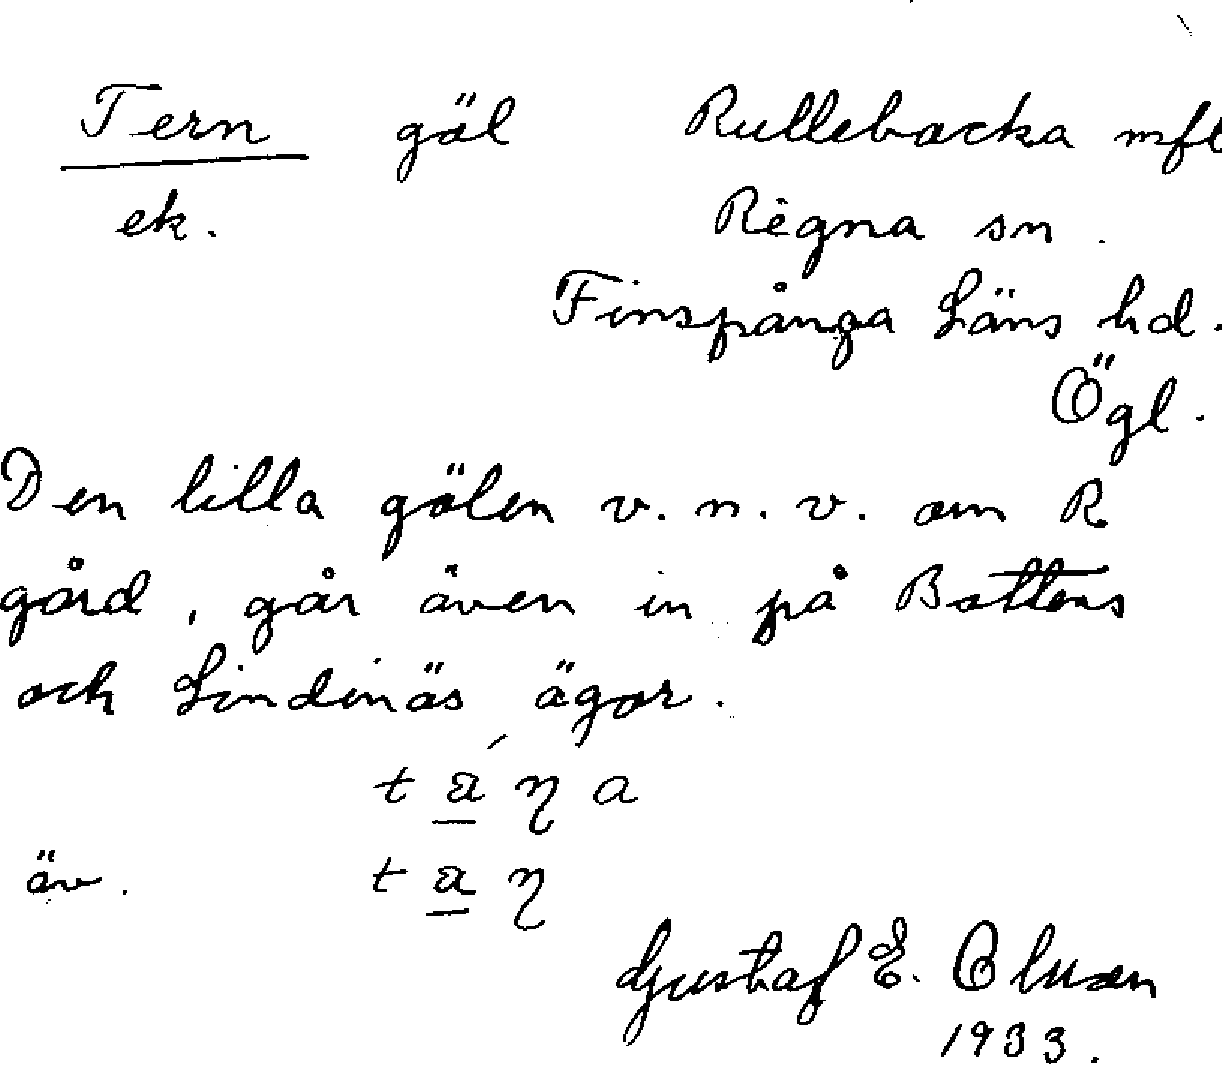 Tern göl Rullebacka mfl
ek. Regna sn.
Finspånga Läns hd.
Ögl.
Den lilla gölen v. n. v. om R
gård, går även in på Bottens
och Lindinäs ägor.
t a ŋ a
äv. t a ŋ
Gustaf E. Olsson
1933.